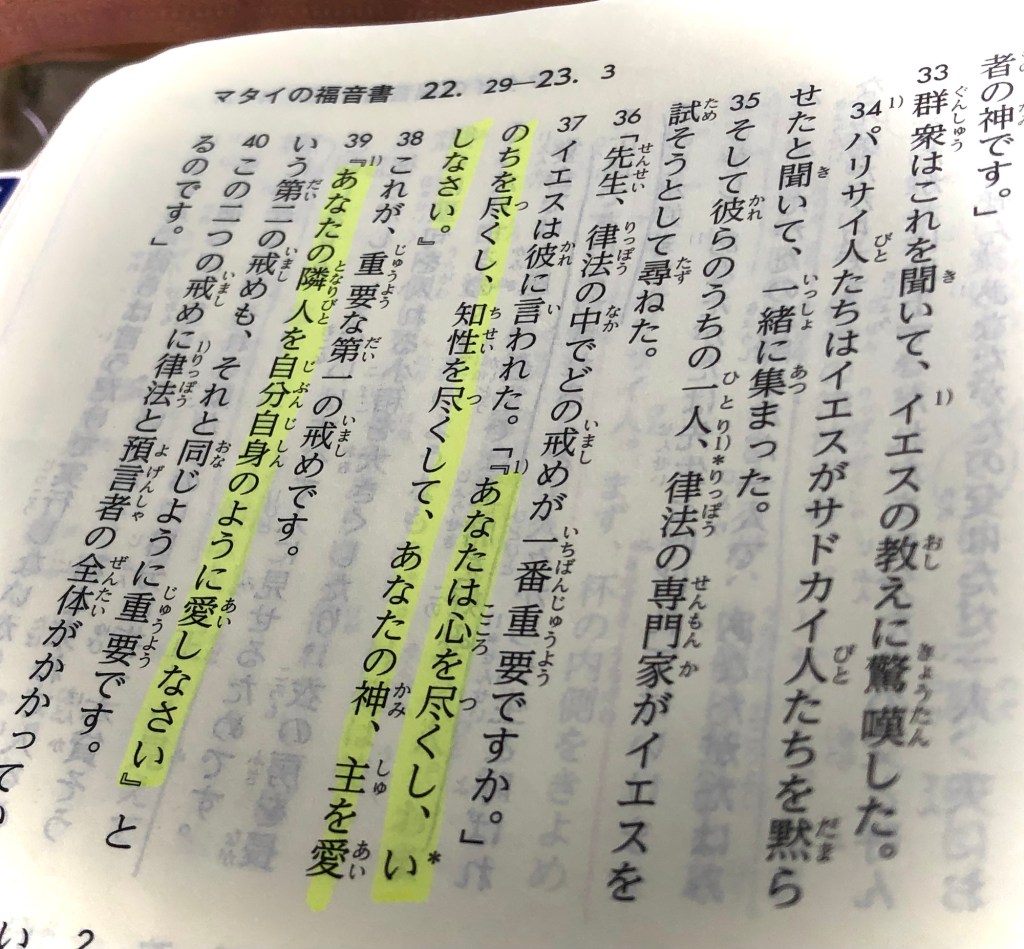 マタイの福音書 22. 29―23. 3
者の神です。」
33 群衆はこれを聞いて、イエスの教えに驚嘆した。
34 パリサイ人たちはイエスがサドカイ人たちを黙ら
せたと聞いて、一緒に集まった。
35 そして彼らのうちの一人、律法の専門家がイエスを
試そうとして尋ねた。
36 「先生、律法の中でどの戒めが一番重要ですか。」
37 イエスは彼に言われた。「『あなたは心を尽くし、い
のちを尽くし、知性を尽くして、あなたの神、主を愛
しなさい。』
38 これが、重要な第一の戒めです。
39 『あなたの隣人を自分自身のように愛しなさい』と
いう第二の戒めも、それと同じように重要です。
40 この二つの戒めに律法と預言者の全体がかかって
るのです。」
い 2